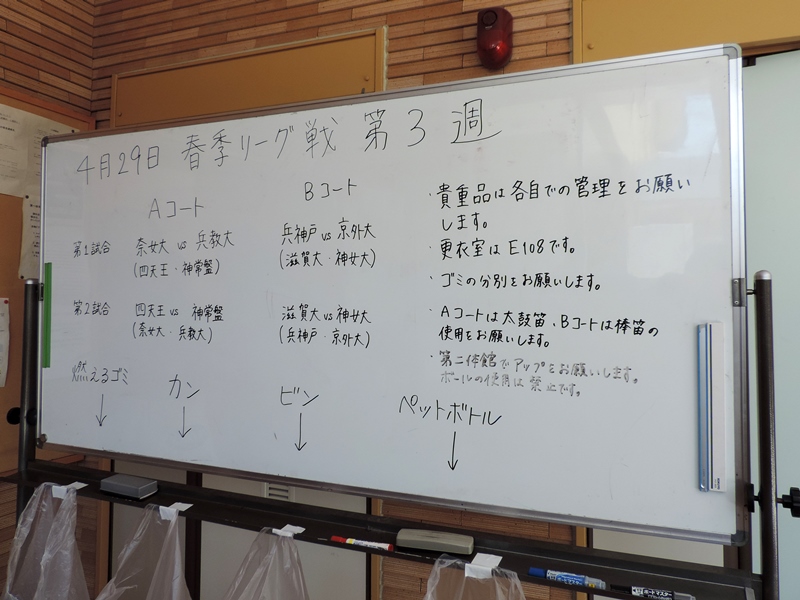 4月29日 春季リーグ戦 第3週
Aコート
Bコート
第1試合
奈女大 vs 兵教大
(四天王・神常盤)
兵神戸 vs 京外大
(滋賀大・神女大)
第2試合
四天王 vs 神常盤
(奈女大・兵教大)
滋賀大 vs 神女大
(兵神戸・京外大)
・貴重品は各自での管理をお願い
します。
・更衣室はE108です。
・ゴミの分別をお願いします。
・Aコートは太鼓笛、Bコートは棒笛の
使用をお願いします。
・第二体館でアップをお願いします。
ボールの使用は禁止です。
燃えるゴミ
↓
カン
↓
ビン
↓
ペットボトル
↓
ボードマスター